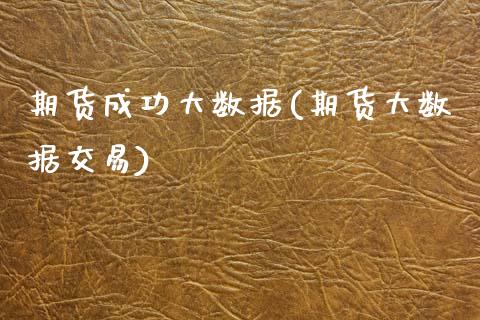 期货成功大数据(期货大数
据交易)